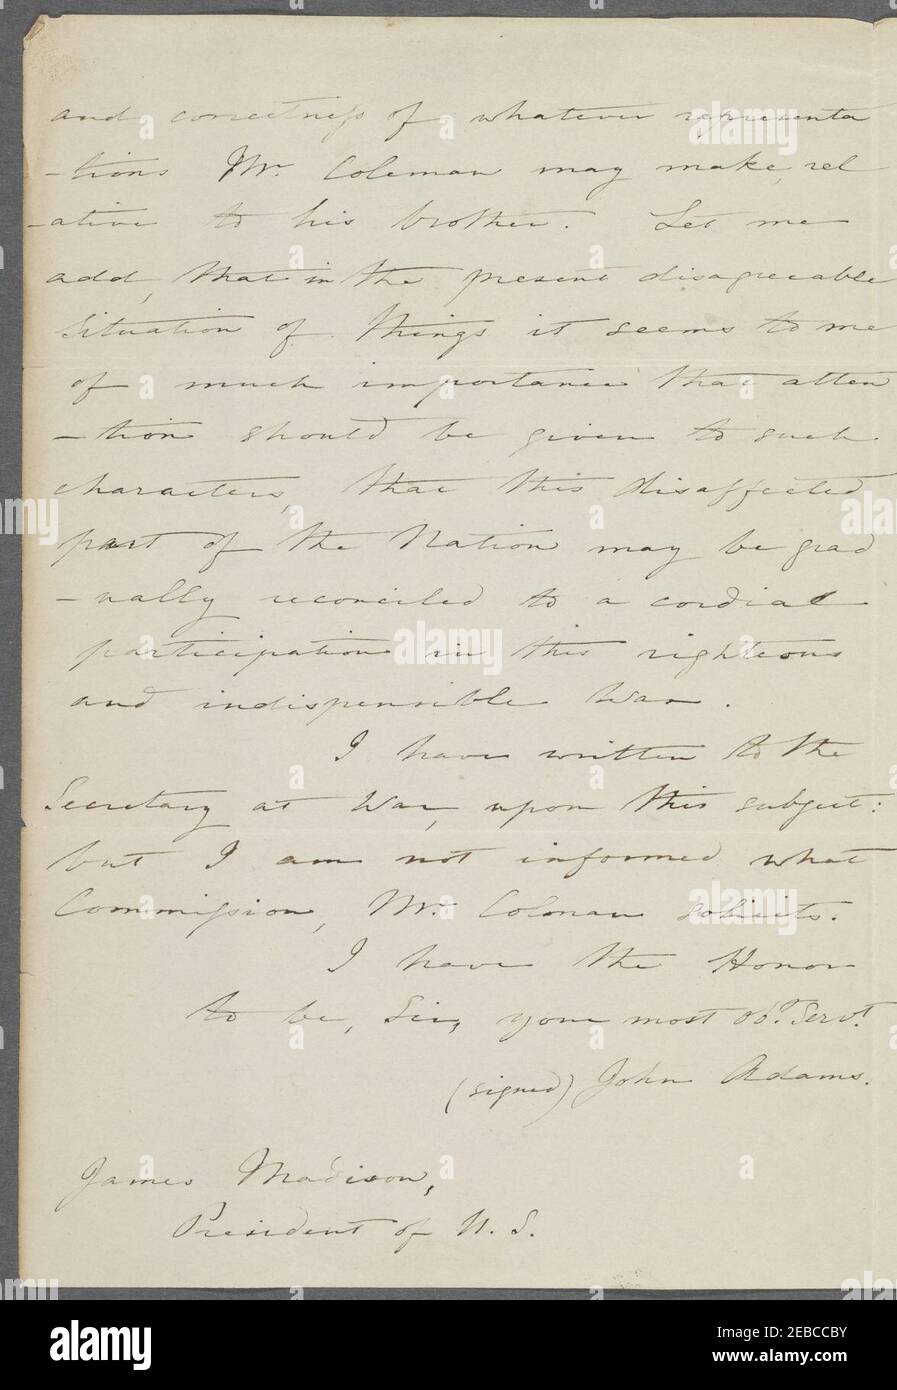 and correctness of whatever representa
-tions Mr. Coleman may make, rel
-ative to his brother. Let me
add, that in the present disagreeable
situation of things it seems to me
of much importance that atten
-tion should be given to such
characters, that this disaffected
part of the Nation may be grad
-ually reconciled to a cordial
participation in this righteous
and indispensible War.
I have written to the
Secretary at War, upon this subject:
but I am not informed what
Commission, Mr. Colman solicits.
I have the Honor
to be, Sir, your most Obt. Servt.
(signed) John Adams.
James Madison,
President of U. S.
alamy
Image ID: 2EBCCBY
www.alamy.com